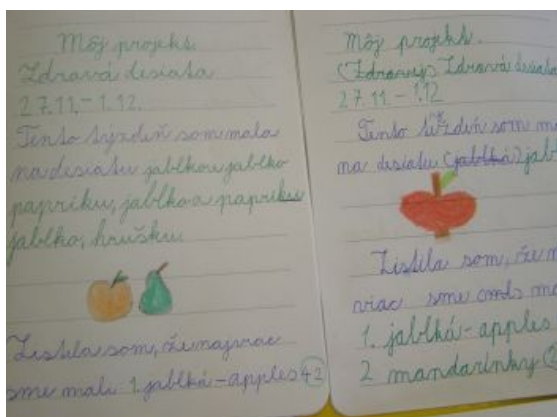 Môj projekt
Zdravá desiata
27.11.-1.12.
Tento týždeň som mala
na desiatu jablko, jablko
papriku, jablko a papriku
jablko, hrušku
Zistila som, že najviac
sme mali 1. jablká-apples 42
Môj projekt.
(Zdravy) Zdravá desiata
27.11.-1.12
Tento týždeň som
na desiatu (jablká)
Zistila som, že
viac sme
1. jablká-apples
2 mandarínky